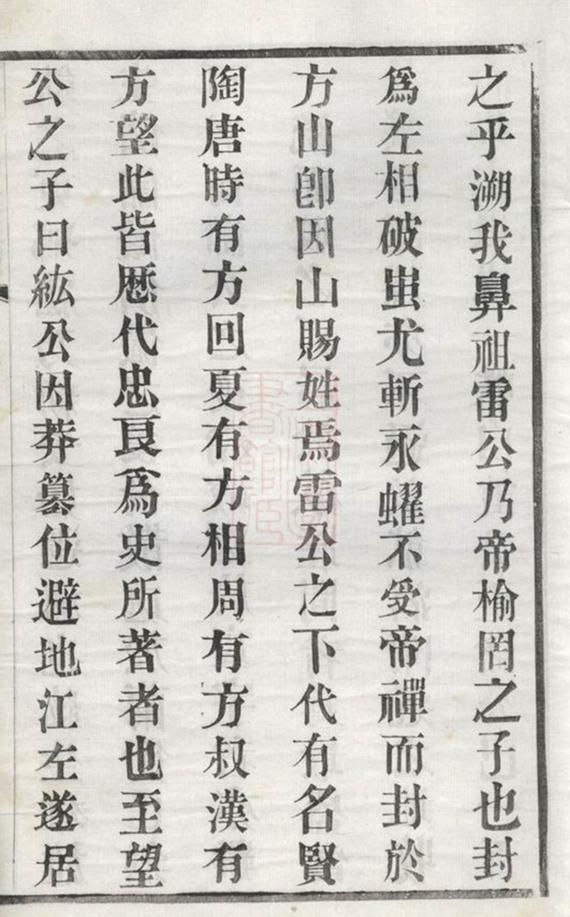 之乎溯我鼻祖雷公乃帝榆罔之子也封
爲左相破蚩尤斬永蠗不受帝禪而封於
方山卽因山賜姓焉雷公之下代有名賢
陶唐時有方回夏有方相周有方叔漢有
方望此皆歷代忠良爲史所著者也至望
公之子曰紘公因莽篡位避地江左遂居